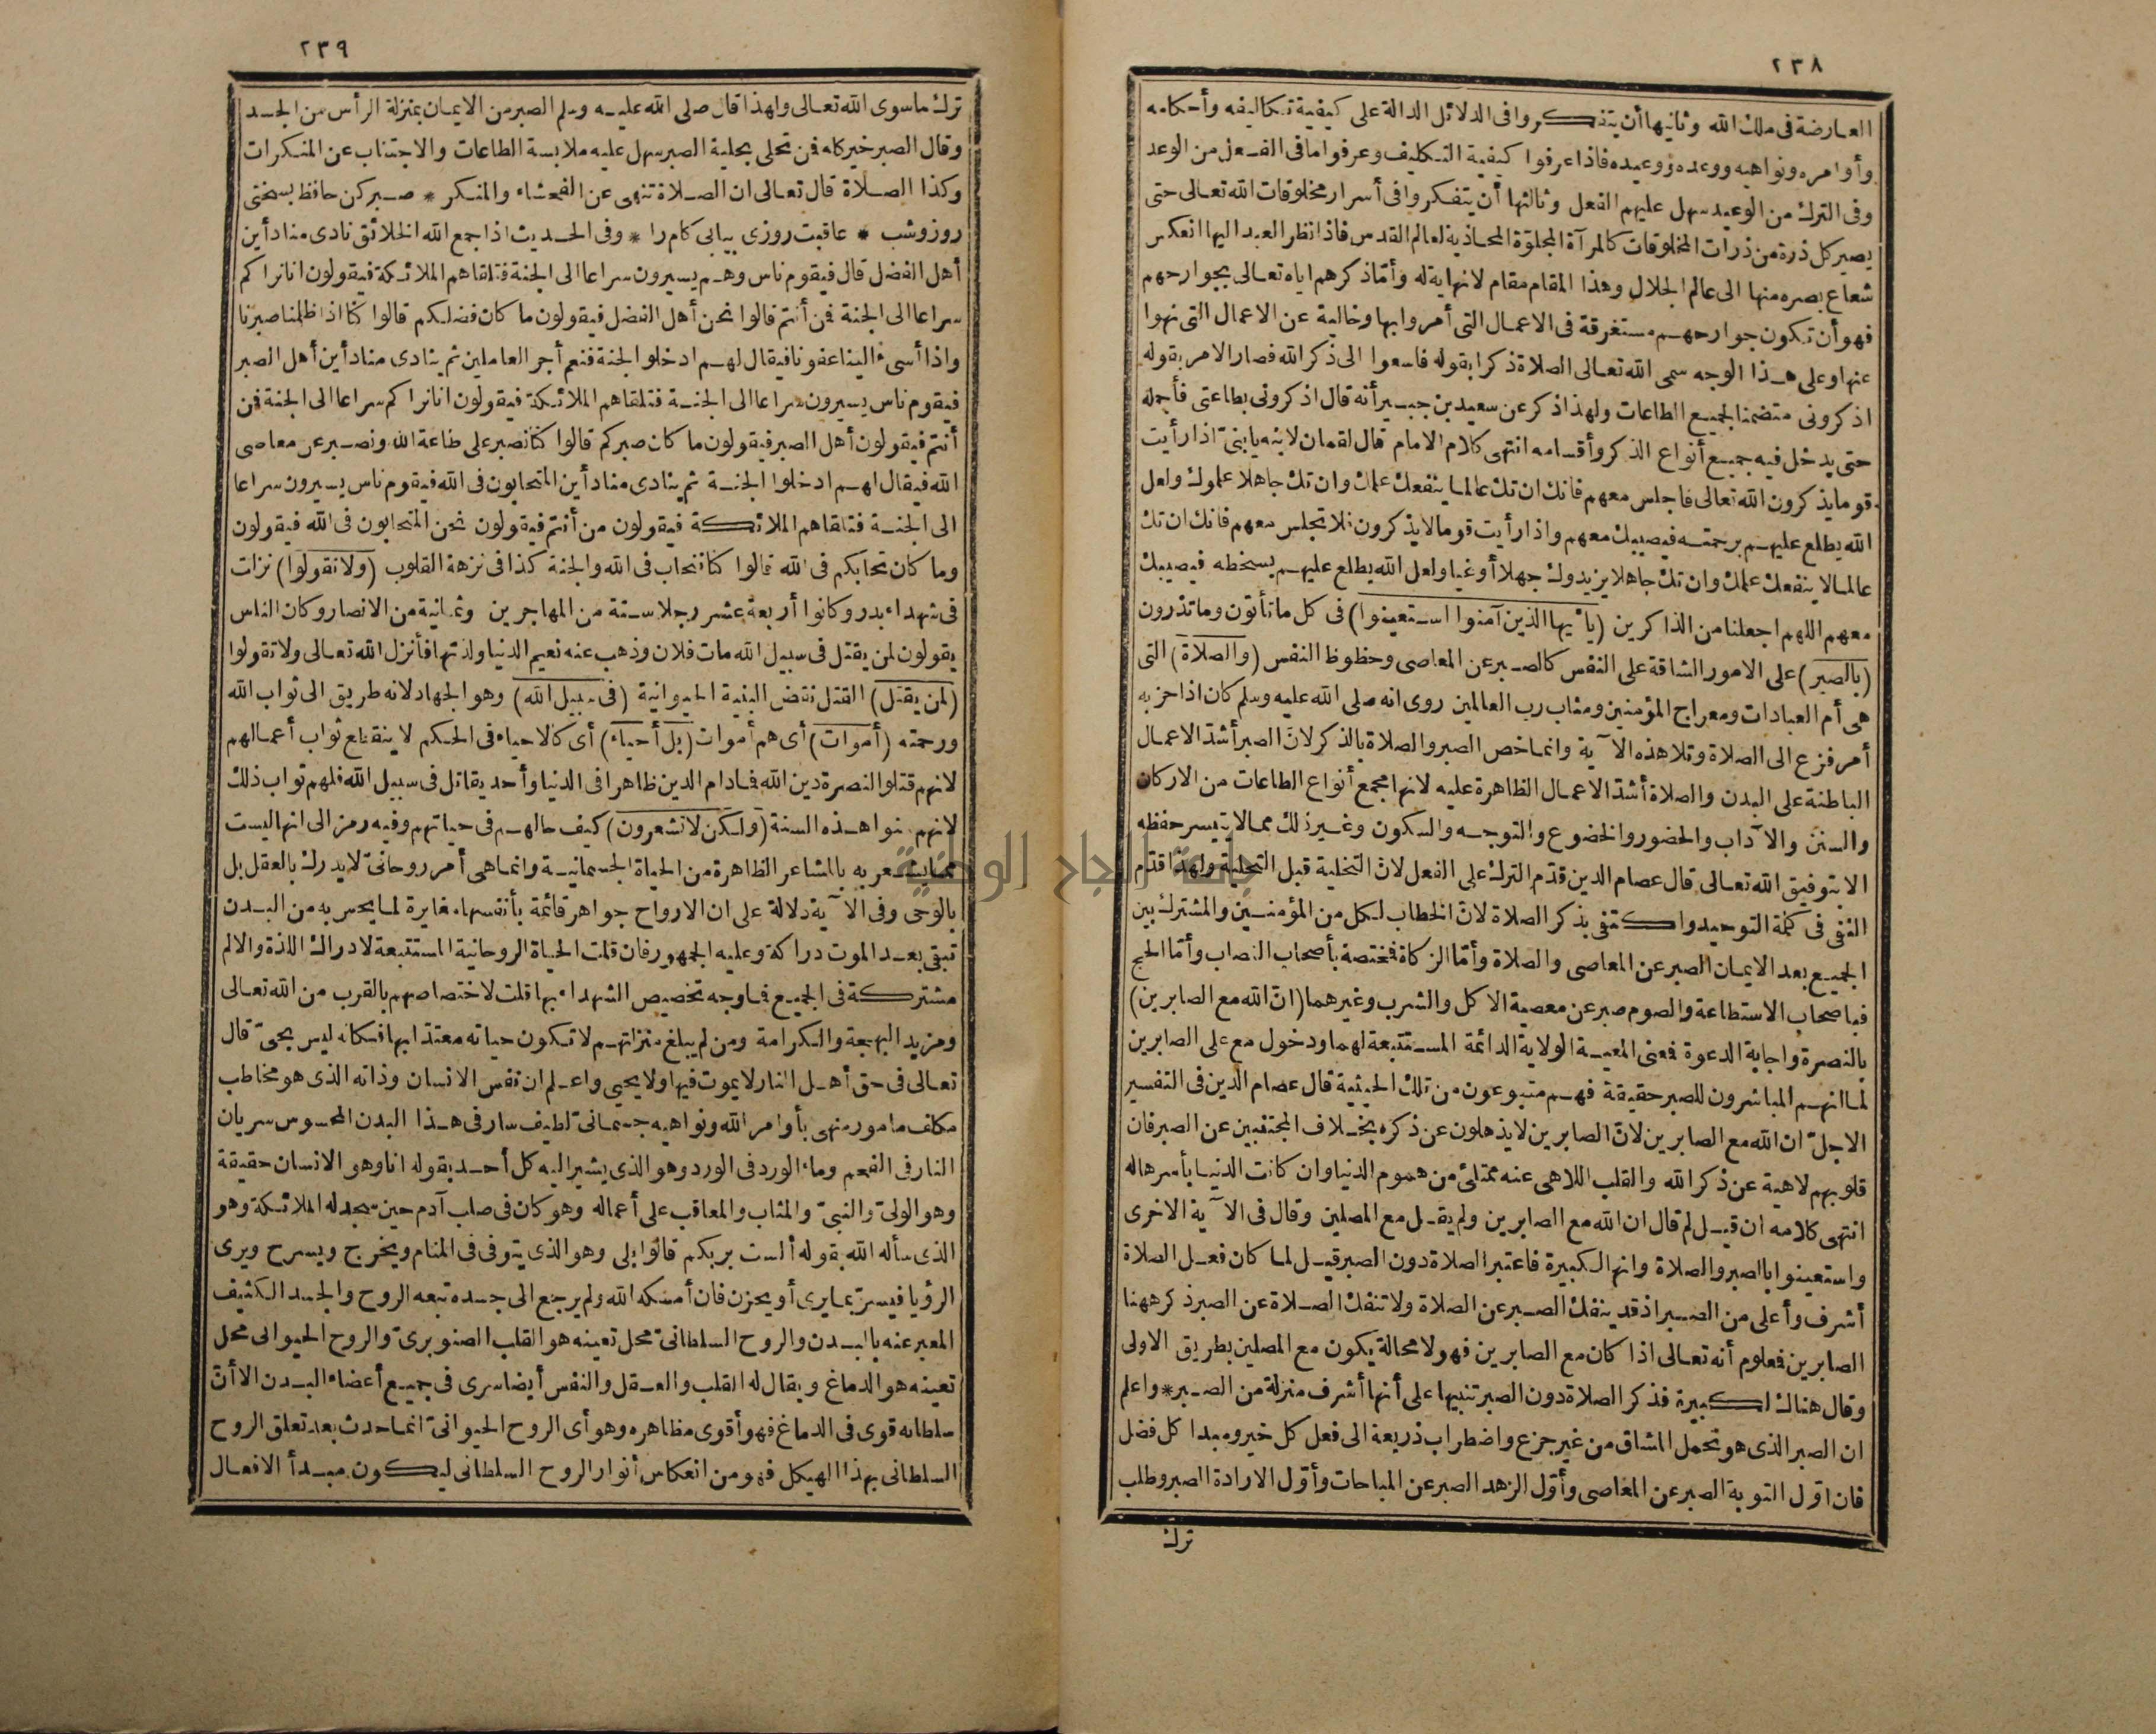 ٢٣٨
العارضة فى ملك الله وثانيها أن يتفكروا فى الدلائل الدالة على كيفية تكاليفه وأحكامه
وأوامره ونواهيه ووعده ووعيده فاذا عرفوا كيفية التكليف وعرفوا ما فى الفعل من الوعد
وفى الترك من الوعيد سهل عليهم الفعل وثالثها أن يتفكروا فى أسرار مخلوقات الله تعالى حتى
يصير كل ذرة من ذرات المخلوقات كالمرآة المجلوّة المحاذية لعالم القدس فاذا نظر العبد اليها انعكس
شعاع بصره منها الى عالم الجلال وهذا المقام مقام لا نهاية له وأمّا ذكرهم اياه تعالى بجوارحهم
فهو أن تكون جوارحهم مستغرقة فى الاعمال التى أمروا بها وخالية عن الاعمال التى نهوا
عنها وعلى هذا الوجه سمى الله تعالى الصلاة ذكرا بقوله فاسعوا الى ذكر الله فصار الامر بقوله
اذكرونى متضمنا لجميع الطاعات ولهذا ذكر عن سعيد بن جبير أنه قال اذكرونى بطاعتى فأجمله
حتى يدخل فيه جميع أنواع الذكر وأقسامه انتهى كلام الامام قال لقمان لابنه يا بنىّ اذا رأيت
قوما يذكرون الله تعالى فاجلس معهم فانك ان تك عالما ينفعك علمك وان تك جاهلا علموك ولعل
الله يطلع عليهم برحمته فيصيبك معهم واذا رأيت قوما لا يذكرون فلا تجلس معهم فانك ان تك
عالما لا ينفعك علمك وان تك جاهلا يزيدوك جهلا أو غيا ولعل الله يطلع عليهم بسخطه فيصيبك
معهم اللهم اجعلنا من الذاكرين (يا أيها الذين آمنوا استعينوا) فى كل ما تأتون وما تذرون
(بالصبر) على الامور الشاقة على النفس كالصبر عن المعاصى وحظوظ النفس (والصلاة) التى
هى أم العبادات ومعراج المؤمنين ومثاب رب العالمين روى انه صلى الله عليه وسلم كان اذا حزبه
أمر فزع الى الصلاة وتلا هذه الآية وانما خص الصبر والصلاة بالذكر لانّ الصبر أشدّ الاعمال
الباطنة على البدن والصلاة أشدّ الاعمال الظاهرة عليه لانها مجمع أنواع الطاعات من الاركان
والسنن والآداب والحضور والخضوع والتوجه والسكون وغير ذلك مما لا يتيسر حفظه
الا بتوفيق الله تعالى قال عصام الدين قدّم الترك على الفعل لانّ التخلية قبل التحلية ولهذا قدّم
النفى فى كلمة التوحيد واكتفى بذكر الصلاة لانّ الخطاب لكل من المؤمنين والمشترك بين
الجميع بعد الايمان الصبر عن المعاصى والصلاة وأمّا الزكاة فمختصة بأصحاب النصاب وأمّا الحج
فبأصحاب الاستطاعة والصوم صبر عن معصية الاكل والشرب وغيرهما (انّ الله مع الصابرين)
بالنصرة واجابة الدعوة فمعنى المعية الولاية الدائمة المستتبعة لهما ودخول مع على الصابرين
لما انهم المباشرون للصبر حقيقة فهم متبوعون من تلك الحيثية قال عصام الدين فى التفسير
الاجلّ ان الله مع الصابرين لانّ الصابرين لا يذهلون عن ذكره بخلاف المجتنبين عن الصبر فان
قلوبهم لاهية عن ذكر الله والقلب اللاهى عنه ممتلئ من هموم الدنيا وان كانت الدنيا بأسرها له
انتهى كلامه ان قيل لم قال ان الله مع الصابرين ولم يقل مع المصلين وقال فى الآية الاخرى
واستعينوا بالصبر والصلاة وانها لكبيرة فاعتبر الصلاة دون الصبر قيل لما كان فعل الصلاة
أشرف وأعلى من الصبر اذ قد ينفك الصبر عن الصلاة ولا تنفك الصلاة عن الصبر ذكر ههنا
الصابرين فمعلوم أنه تعالى اذا كان مع الصابرين فهو لا محالة يكون مع المصلين بطريق الاولى
وقال هنالك لكبيرة فذكر الصلاة دون الصبر تنبيها على أنها أشرف منزلة من الصبر * واعلم
ان الصبر الذى هو تحمل المشاق من غير جزع واضطراب ذريعة الى فعل كل خير ومبدا كل فضل
فان اوّل التوبة الصبر عن المعاصى وأوّل الزهد الصبر عن المباحات وأوّل الارادة الصبر وطلب
ترك
٢٣٩
ترك ما سوى الله تعالى ولهذا قال صلى الله عليه وسلم الصبر من الايمان بمنزلة الرأس من الجسد
وقال الصبر خير كله فمن تحلى بحلية الصبر سهل عليه ملابسة الطاعات والاجتناب عن المنكرات
وكذا الصلاة قال تعالى ان الصلاة تنهى عن الفحشاء والمنكر * صبر كن حافظ بسختى
روز وشب * عاقبت روزى بيابى كام را * وفى الحديث اذا جمع الله الخلائق نادى مناد أين
أهل الفضل قال فيقوم ناس وهم يسيرون سراعا الى الجنة فتلقاهم الملائكة فيقولون انا نراكم
سراعا الى الجنة فمن أنتم قالوا نحن أهل الفضل فيقولون ما كان فضلكم قالوا كنّا اذا ظلمنا صبرنا
واذا أسىء الينا عفونا فيقال لهم ادخلوا الجنة فنعم أجر العاملين ثم ينادى مناد أين أهل الصبر
فيقوم ناس يسيرون سراعا الى الجنة فتلقاهم الملائكة فيقولون انا نراكم سراعا الى الجنة فمن
أنتم فيقولون أهل الصبر فيقولون ما كان صبركم قالوا كنّا نصبر على طاعة الله ونصبر عن معاصى
الله فيقال لهم ادخلوا الجنة ثم ينادى مناد أين المتحابون فى الله فيقوم ناس يسيرون سراعا
الى الجنة فتلقاهم الملائكة فيقولون من أنتم فيقولون نحن المتحابون فى الله فيقولون
وما كان تحابكم فى الله قالوا كنّا نتحاب فى الله والجنة كذا فى نزهة القلوب (ولا تقولوا) نزلت
فى شهداء بدر وكانوا أربعة عشر رجلا ستة من المهاجرين وثمانية من الانصار وكان الناس
يقولون لمن يقتل فى سبيل الله مات فلان وذهب عنه نعيم الدنيا ولذتها فأنزل الله تعالى ولا تقولوا
(لمن يقتل) القتل نقض البنية الحيوانية (فى سبيل الله) وهو الجهاد لانه طريق الى ثواب الله
ورحمته (أموات) أى هم أموات (بل أحياء) أى كالاحياء فى الحكم لا ينقطع ثواب أعمالهم
لانهم قتلوا لنصرة دين الله فما دام الدين ظاهرا فى الدنيا وأحد يقاتل فى سبيل الله فلهم ثواب ذلك
لانهم سنوا هذه السنة (ولكن لا تشعرون) كيف حالهم فى حياتهم وفيه رمز الى انها ليست
مما يشعر به بالمشاعر الظاهرة من الحياة الجسمانية وانما هى أمر روحانىّ لا يدرك بالعقل بل
بالوحى وفى الآية دلالة على ان الارواح جواهر قائمة بأنفسها مغايرة لما يحس به من البدن
تبقى بعد الموت دراكة وعليه الجمهور فان قلت الحياة الروحانية المستتبعة لادراك اللذة والالم
مشتركة فى الجميع فما وجه تخصيص الشهداء بها قلت لاختصاصهم بالقرب من الله تعالى
ومزيد البهجة والكرامة ومن لم يبلغ منزلتهم لا تكون حياته معتدّا بها فكانه ليس بحىّ قال
تعالى فى حق أهل النار لا يموت فيها ولا يحيى واعلم ان نفس الانسان وذاته الذى هو مخاطب
مكلف مامور منهى بأوامر الله ونواهيه جسمانىّ لطيف سار فى هذا البدن المحسوس سريان
النار فى الفحم وماء الورد فى الورد وهو الذى يشير اليه كل أحد بقوله انا وهو الانسان حقيقة
وهو الولىّ والنبىّ والمثاب والمعاقب على أعماله وهو كان فى صلب آدم حين سجد له الملائكة وهو
الذى سأله الله بقوله ألست بربكم قالوا بلى وهو الذى يتوفى فى المنام ويخرج ويسرح ويرى
الرؤيا فيسرّ بما يرى أو يحزن فان أمسكه الله ولم يرجع الى جسده تبعه الروح والجسد الكثيف
المعبر عنه بالبدن والروح السلطانىّ محل تعينه هو القلب الصنوبرىّ والروح الحيوانى محل
تعينه هو الدماغ ويقال له القلب والعقل والنفس أيضا سرى فى جميع أعضاء البدن الا أنّ
سلطانه قوى فى الدماغ فهو أقوى مظاهره وهو أى الروح الحيوانىّ انما حدث بعد تعلق الروح
السلطانى بهذا الهيكل فهو من انعكاس أنوار الروح السلطانى ليكون مبدأ الافعال
جامعة النجاح الوطنية